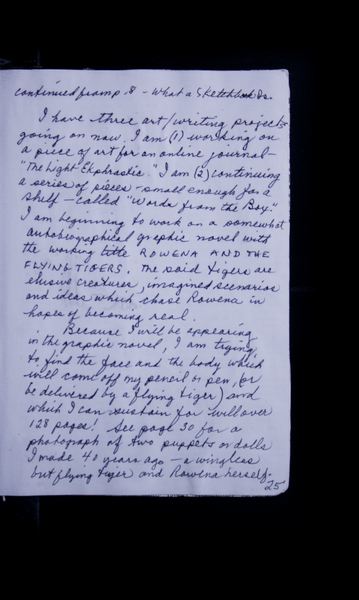 continued from p. 8 - What a Sketchbook Is.
I have three art/writing projects
going on now. I am (1) working on
a piece of art for an online journal -
"The Light Ekphrastic." I am (2) continuing
a series of pieces - small enough for a
shelf - called "Words from the Box."
I am beginning to work on a somewhat
autobiographical graphic novel with
the working title ROWENA AND THE
FLYING TIGERS. The said tigers are
elusive creatures, imagined scenarios
and ideas which chase Rowena in
hopes of becoming real.
Because I will be appearing
in the graphic novel, I am trying
to find the face and the body which
will come off my pencil or pen, (or
be delivered by a flying tiger) and
which I can sustain for well over
128 pages! See page 30 for a
photograph of two puppets or dolls
I made 40 years ago - a wingless
but flying tiger and Rowena herself.
25